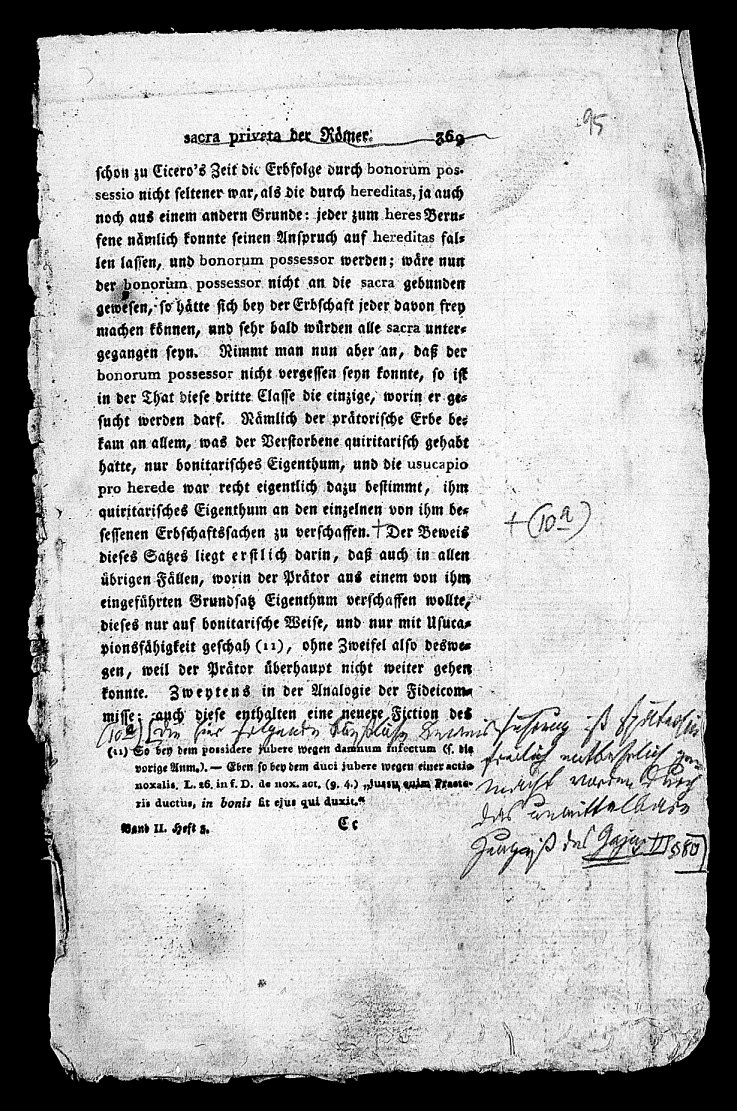 95
sacra privata der Römer. 369
schon zu Cicero's Zeit die Erbfolge durch bonorum pos-
sessio nicht seltener war, als die durch hereditas, ja auch
noch aus einem andern Grunde: jeder zum heres Beru-
fene nämlich konnte seinen Anspruch auf hereditas fal-
len lassen, und bonorum possessor werden; wäre nun
der bonorum possessor nicht an die sacra gebunden
gewesen, so hätte sich bey der Erbschaft jeder davon frey
machen können, und sehr bald würden alle sacra unter-
gegangen seyn. Nimmt man nun aber an, daß der
bonorum possessor nicht vergessen seyn konnte, so ist
in der That diese dritte Classe die einzige, worin er ge-
sucht werden darf. Nämlich der prätorische Erbe be-
kam an allem, was der Verstorbene quiritarisch gehabt
hatte, nur bonitarisches Eigenthum, und die usucapio
pro herede war recht eigentlich dazu bestimmt, ihm
quiritarisches Eigenthum an den einzelnen von ihm be-
sessenen Erbschaftssachen zu verschaffen. † Der Beweis
† (10a)
dieses Satzes liegt erstlich darin, daß auch in allen
übrigen Fällen, worin der Prätor aus einem von ihm
eingeführten Grundsatz Eigenthum verschaffen wollte,
dieses nur auf bonitarische Weise, und nur mit Usuca-
pionsfähigkeit geschah (11), ohne Zweifel also deswe-
gen, weil der Prätor überhaupt nicht weiter gehen
konnte. Zweytens in der Analogie der Fideicom-
misse; auch diese enthalten eine neuere Fiction des
(10a) [Die hier folgende Beweisführung ist späterhin
freilich entbehrlich ge-
macht worden durch
das unmittelbare
Zeugniß des Gajus III §80]
(11) So bey dem possidere jubere wegen damnum infectum (s. die
vorige Anm.). — Eben so bey dem duci jubere wegen einer actio
noxalis. L. 26. in f. D. de nox. act. (9. 4.) „jussu enim Praeto-
ris ductus, in bonis fit ejus qui duxit."
Band II. Heft 3. Cc